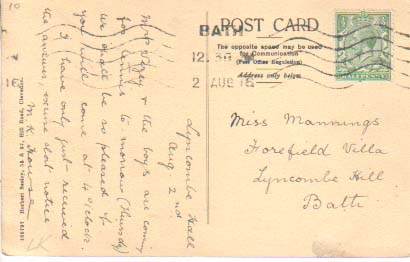 10
POST CARD
The opposite space may be used
for Communication
(Post Office Regulation)
Address only here.
BATH
12.30
2 AUG 16
HALFPENNY
Lyncombe Hall
Aug. 2nd
Mrs & the boys are coming
for tennis to-morrow (Thursday)
we shall be so pleased if
you will come at 4 o'clock.
I have only just received
the answer, excuse short notice
M. K.
Miss Mannings
Forefield Villa
Lyncombe Hill
Bath
Hill Road, Clevedon